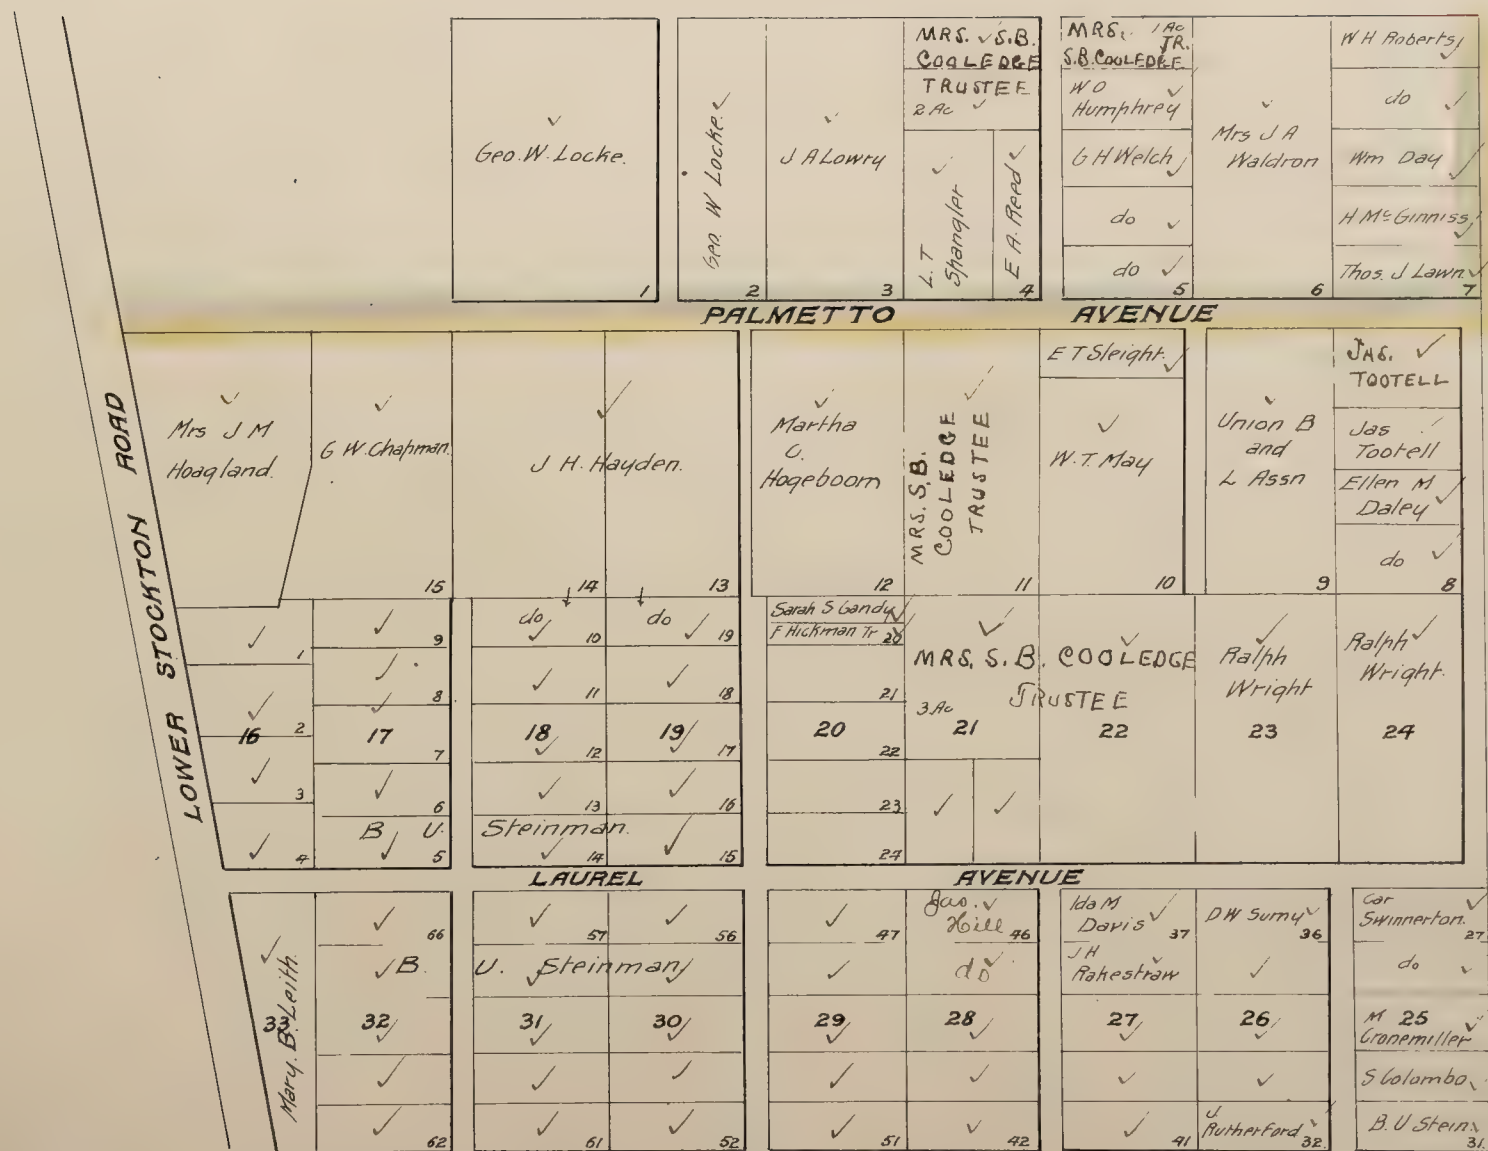 Geo. W. Locke.
1
Geo. W Locke.
2
J A Lowry
3
MRS. S.B.
COOLEDGE
TRUSTEE
2 Ac
L. T
Spangler
E A. Reed
4
MRS. 1 Ac
JR.
S.B. COOLEDGE
W O
Humphrey
G H Welch
do
do
5
Mrs J A
Waldron
6
W H Roberts
do
Wm Day
H McGinniss
Thos. J Lawn.
7
PALMETTO AVENUE
LOWER STOCKTON ROAD
Mrs J M
Hoagland.
G W. Chapman.
15
J H. Hayden.
14
13
Martha
C.
Hogeboom
12
MRS. S.B.
COOLEDGE
TRUSTEE
11
E T Sleight.
W. T. May
10
Union B
and
L Assn
9
JAS.
TOOTELL
Jas
Tootell
Ellen M
Daley
do
8
1
2
16
3
4
9
8
17
7
6
B U.
5
do
10
11
18
12
13
Steinman.
14
do
19
18
19
17
16
15
Sarah S Gandy
F Hickman Tr 20
21
20
22
23
24
MRS. S. B. COOLEDGE
TRUSTEE
3 Ac
21
22
Ralph
Wright
23
Ralph
Wright.
24
LAUREL AVENUE
Mary. B. Leith.
33
66
B.
32
62
57
U. Steinman
31
61
56
30
52
47
29
51
Jas.
Hill 46
do
28
42
Ida M
Davis 37
J H
Rakestraw
27
41
D W Sumy
36
26
J
Rutherford 32
Car
Swinnerton.
27
do
M 25
Cronemiller
S Colombo
B. U Stein.
31